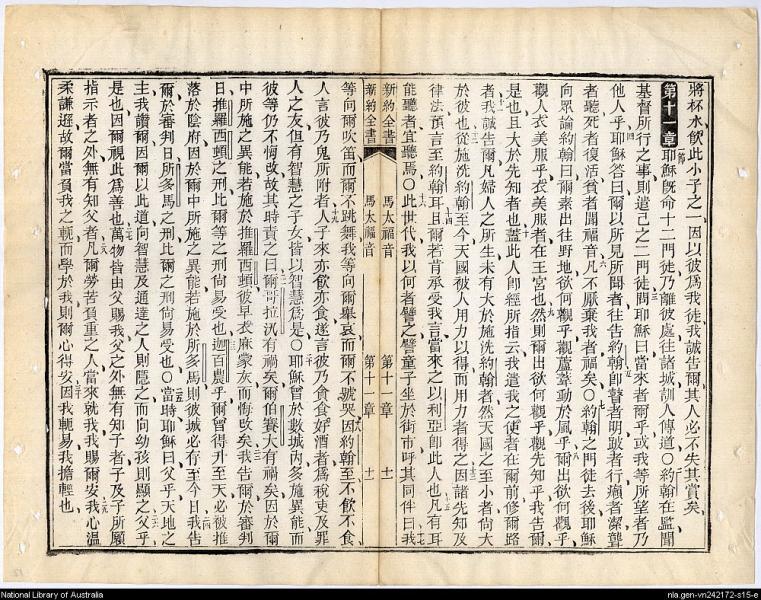 將杯水飲此小子之一因以彼爲我徒我誠告爾其人必不失其賞矣
第十一章耶穌既命十二門徒乃離彼處往諸城訓人傳道○約翰在監聞
基督所行之事則遣己之二門徒問耶穌曰當來者爾乎或我等所望者乃
他人乎耶穌答曰爾以所見所聞者往告約翰卽瞽者明跛者行癩者潔聾
者聽死者復活貧者聞福音凡不厭棄我者福矣○約翰之門徒去後耶穌
向眾論約翰曰爾素出往野地欲何觀乎觀蘆葦動於風乎爾出欲何觀乎
觀人衣美服乎衣美服者在王宮也然則爾出欲何觀乎觀先知乎我告爾
是也且大於先知者也蓋此人卽經所指云我遣我之使者在爾前修爾路
者我誠告爾凡婦人之所生未有大於施洗約翰者然天國之至小者尙大
於彼也從施洗約翰至今天國被人用力以得而用力者得之因諸先知及
律法預言至約翰耳且爾若肯承受我言當來之以利亞卽此人也凡有耳
能聽者宜聽焉○此世代我以何者譬之譬童子坐於街市呼其同伴曰我
新約全書 馬太福音 第十一章 十一
新約全書 馬太福音 第十一章 十一
等向爾吹笛而爾不跳舞我等向爾舉哀而爾不號哭因約翰至不飲不食
人言彼乃鬼所附者人子來亦飲亦食遂言彼乃貪食好酒者爲稅吏及罪
人之友但有智慧之子女皆以智慧爲是○耶穌曾於數城內多施異能而
彼等仍不悔改故其時責之曰爾哥拉汛有禍矣爾伯賽大有禍矣因於爾
中所施之異能若施於推羅西頓彼早衣麻蒙灰而悔改矣我告爾於審判
日推羅西頓之刑比爾等之刑尙易受也迦百農乎爾曾得升至天必被推
落於陰府因於爾中所施之異能若施於所多馬則彼城必存至今日我告
爾於審判日所多馬之刑比爾之刑尙易受也○當時耶穌曰父乎天地之
主我讚爾因爾以此道向智慧及通達之人則隱之而向幼孩則顯之父乎
是也因爾視此爲善也萬物皆由父賜我父之外無有知子者子及子所願
指示者之外無有知父者凡爾勞苦負重之人當來就我我賜爾安我心溫
柔謙遜故爾當負我之軛而學於我則爾心得安因我軛易我擔輕也
National Library of Australia
nla.gen-vn242172-s15-e